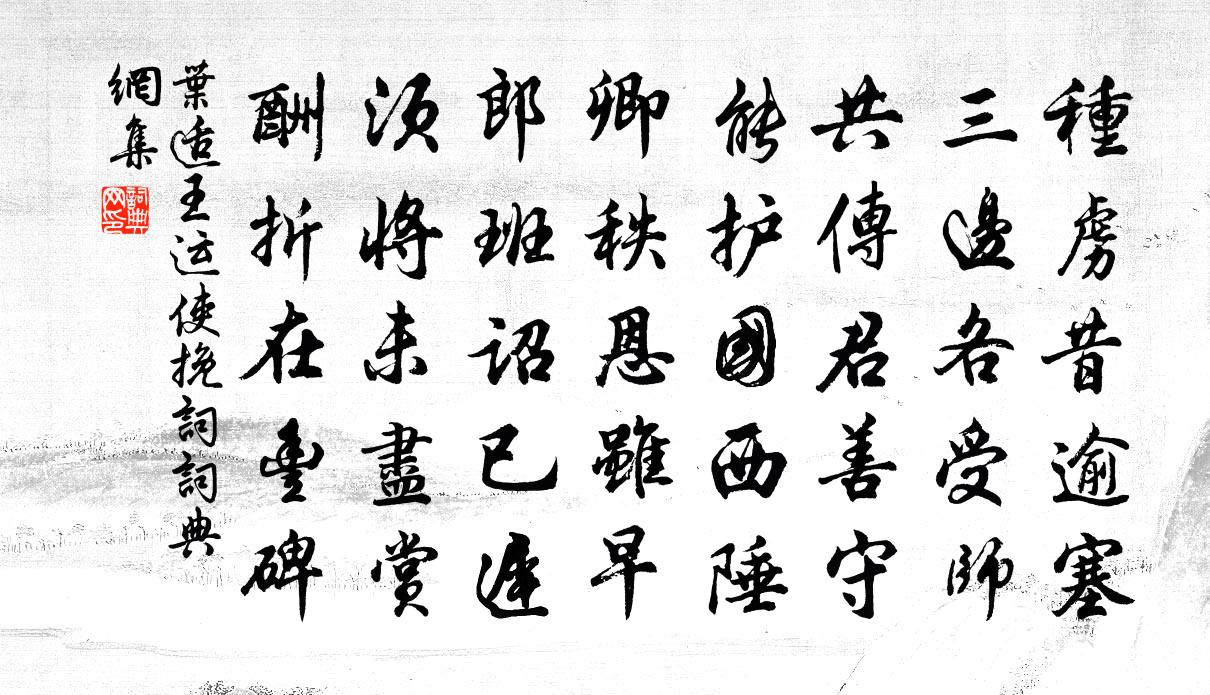 種虜昔逾塞
三邊各受師
共傳君善守
能护國西陲
卿秩恩雖早
郎班詔已遲
須將未盡賞
酬折在豐碑
葉适王运使挽詞詞典
網集
詞典
网印